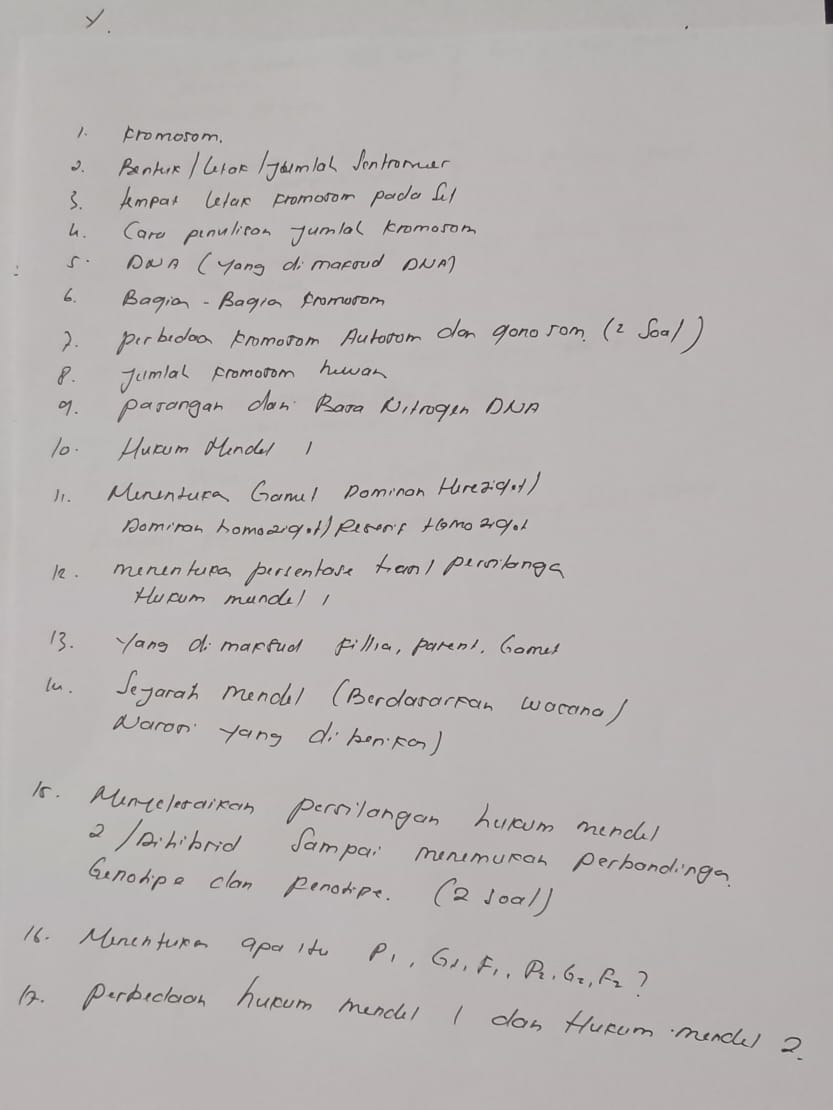 Y.
1. Kromosom.
2. Bentuk / Letak / Jumlah Sentromer
3. tempat letak kromosom pada sel
4. Cara penulisan jumlah kromosom
5. DNA (yang di maksud DNA)
6. Bagian - Bagian kromosom
7. perbedaa kromosom Autosom dan gonosom. (2 Soal)
8. jumlah kromosom hewan
9. pasangan dan Basa Nitrogen DNA
10. Hukum Mendel 1
11. Menentuka Gamet Dominan Herezigot/
Dominan homozigot/ Resesif Homozigot
12. menentuka persentase hasil persilanga
Hukum mendel 1
13. Yang di maksud fillia, parent, Gamet
14. Sejarah mendel (Berdasarkan wacana/
Narasi yang di berikan)
15. Menyelesaikan persilangan hukum mendel
2 / Dihibrid Sampai menemukan perbandinga
Genotipe dan Fenotipe. (2 soal)
16. Menentukan apa itu P1, G1, F1, P2, G2, F2?
17. perbedaan hukum mendel 1 dan Hukum mendel 2.